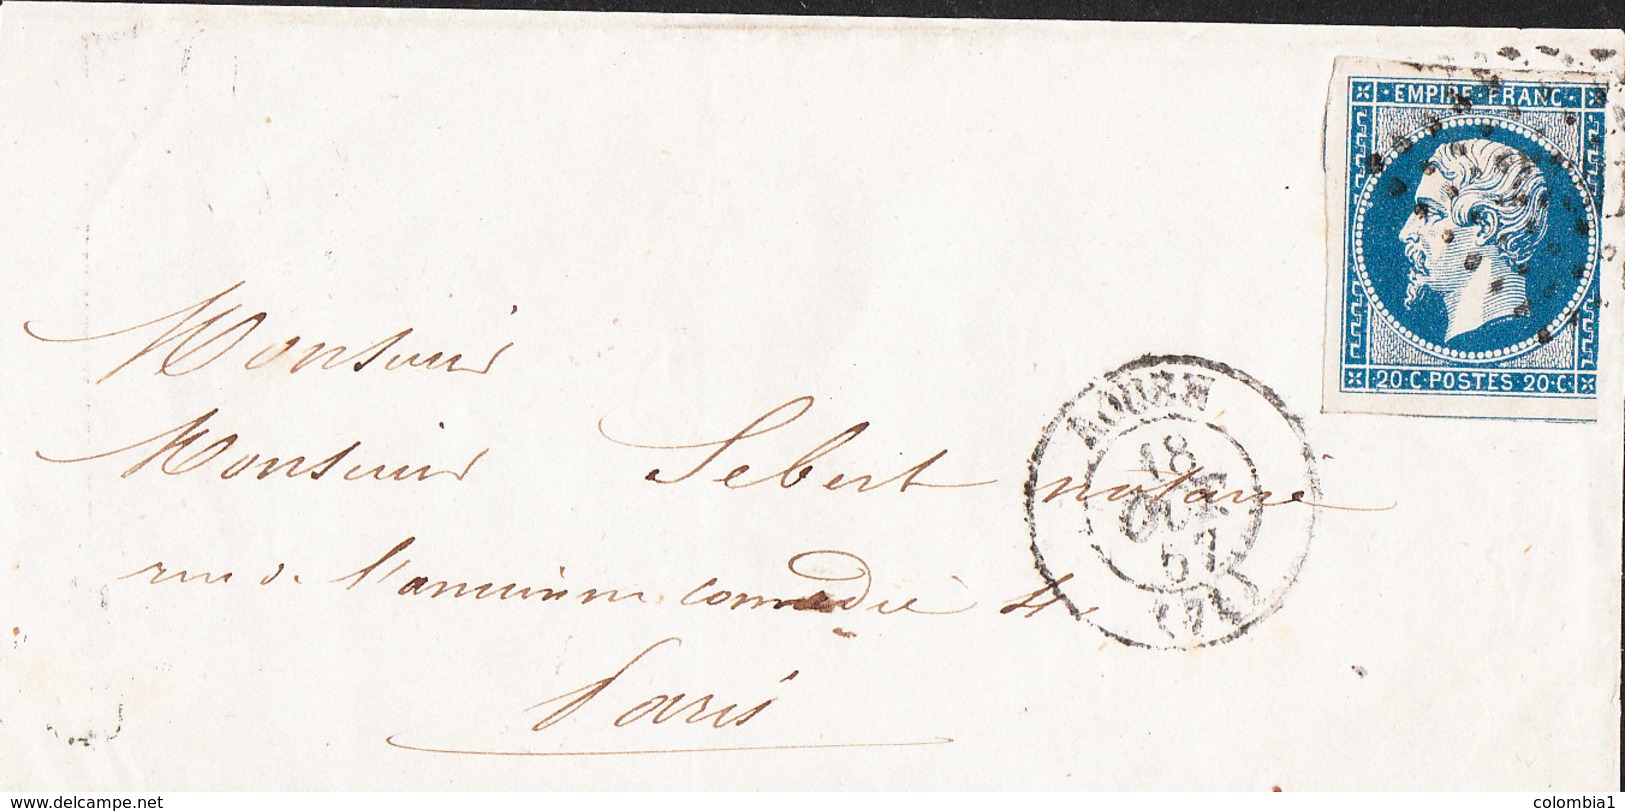 · EMPIRE · FRANC ·
Monsieur
20 · C · POSTES 20 · C ·
ROUEN
18
OCT
57
(74)
Monsieur Sebert notaire
rue de l'ancienne comédie 4
Paris
www.delcampe.net
colombia1